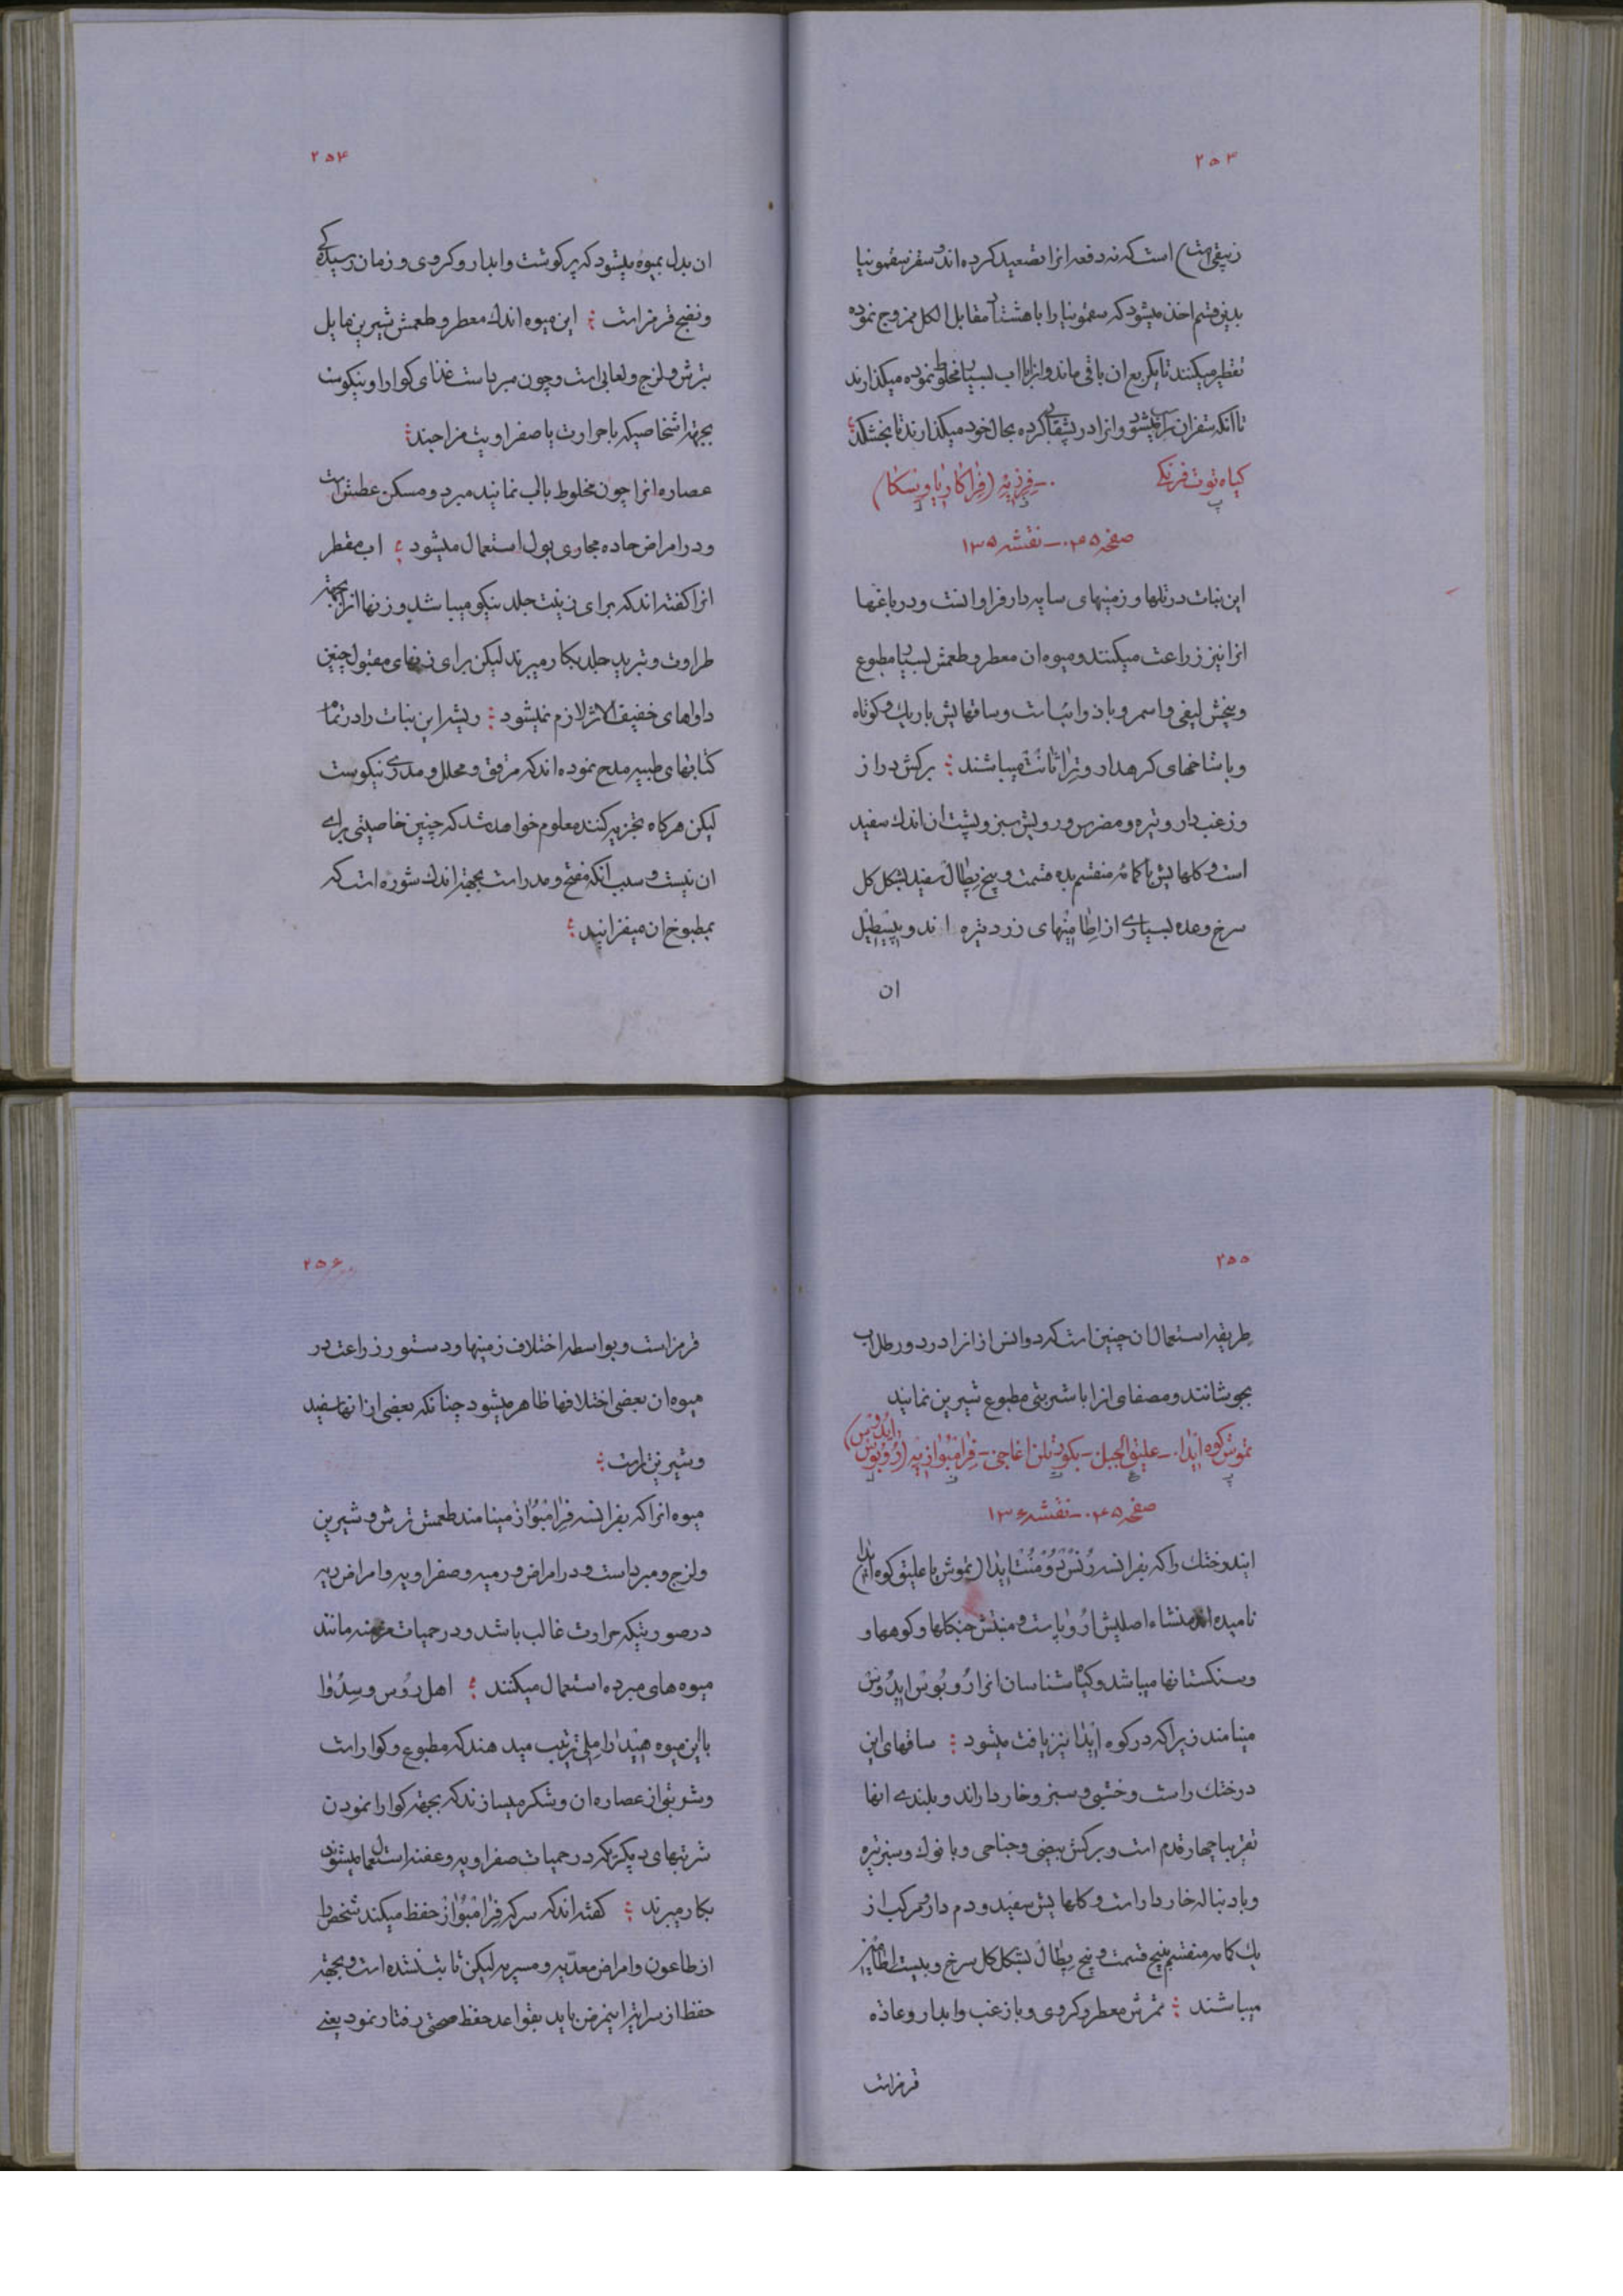 ۲۵۳
زیبقی است) است که نه دفعه انرا تصعید کرده اند و سفز سقمونیا
بدین قسم اخذ میشود که سقمونیا را با هشتاد مقابل الکل ممزوج نموده
تقطیر میکنند تا یکربع ان باقی ماند و انرا با اب بسیار مخلوط نموده میگذارند
تا انکه سفز ان راسب میشود و انرا در بشقابی کرده بحال خود میگذارند تا بخشکد
گیاه توت فرنگی - فرزیه (فراکاریا ویسکا)
صفحه ۰۳۵ - نقشه ۱۳۵
این نبات در تلها و زمینهای سایه دار فراوانست و در باغها
انرا نیز زراعت میکنند و میوه ان معطر و طعمش بسیار مطبوع
و بیخش لیفی و اسمر و با ذوائب است و ساقهایش باریك و کوتاه
و با شاخهای کرهدار و میباشند برکش دراز
و زغب دار و تیره و مضرس و رویش سبز و پشت ان اندك سفید
است و کلهایش با کاسه منقسم بده قسمت و پنج پطال سفید بشکل کل
سرخ و عده بسیاری از اطامینهای زرد تیره اند و پیسطیل
ان
۲۵۴
ان بدل بمیوه میشود که پر کوشت و ابدار و کروی و زمان رسیدگی
و نضج قرمز است این میوه اندك معطر و طعمش شیرین مایل
بترش و لزج و لعابی است و چون مبرد است غذای کوارا و نیکوست
بجهة اشخاصیکه با حرارت یا صفراویت مزاجند
عصاره انرا چون مخلوط باب نمایند مبرد و مسکن عطش است
و در امراض حاده مجاری بول استعمال میشود اب مقطر
انرا کفته اند که برای زینت جلد نیکو میباشد و زنها انرا بجهة
طراوت و تبرید جلد بکار میبرند لیکن برای زنهای مقبول چنین
دواهای خفیف الاثر لازم نمیشود ریشه این نبات را در تمام
کتابهای طبیه مدح نموده اند که مرقق و محلل و مدری نیکوست
لیکن هرکاه تجزیه کنند معلوم خواهد شد که چنین خاصیتی برای
ان نیست و سبب آنکه مفتح و مدر است بجهة اندك شوره است که
بمطبوخ ان میفزایند
۲۵۵
طریقه استعمال ان چنین است که دو انس از انرا در دو رطل اب
بجوشانند و مصفای انرا با شربتی مطبوع شیرین نمایند
تموش کوه ایدا - علیق الجبل - بکورتلن اغاجی - فرامبوازیه (روبوس ایدوس)
صفحه ۰۳۵ - نقشه ۱۳۶
ایندرختك را که بفرانسه رنس دومنت ایدا (تموش یا علیق کوه ایدا)
نامیده اند منشاء اصلیش اروپاست و منبتش جنکلها و کوهها و
و سنکستانها میباشد و کیاه شناسان انرا روبوس ایدوس
مینامند زیرا که در کوه ایدا نیز یافت میشود ساقهای این
درختك راست و خشبی و سبز و خار دار اند و بلندی انها
تقریبا چهار قدم است و برکش بیضی و جناحی و با نوك و سبز تیره
و با دنباله خار دار است و کلهایش سفید و دم دار و مرکب از
یك کاسه منقسم بپنج قسمت و پنج پطال بشکل کل سرخ و بیست اطامین
میباشند ثمرش معطر و کروی و با زغب و ابدار و عادة
قرمز است
۲۵۶
قرمز است و بواسطه اختلاف زمینها و دستور زراعت در
میوه ان بعضی اختلافها ظاهر میشود چنانکه بعضی از انها سفید
و شیرین تر است
میوه انرا که بفرانسه فرامبواز مینامند طعمش ترش و شیرین
و لزج و مبرد است و در امراض ورمیه و صفراویه و امراض دیه
در صورتیکه حرارت غالب باشد و در حمیات مزمنه مانند
میوه های مبرده استعمال میکنند اهل روس و سدوا
با این میوه هیدرا ملی ترتیب میدهند که مطبوع و کوارا است
و شربتی از عصاره ان و شکر میسازند که بجهة کوارا نمودن
شربتهای دیکر که در حمیات صفراویه و عفنه استعمال میشود
بکار میبرند کفته اند که سرکه فرامبواز حفظ میکند شخص را
از طاعون و امراض معدیه و مسریه لیکن ثابت نشده است و بجهة
حفظ از سرایت اینمرض باید بقواعد حفظ صحتی رفتار نمود یعنی